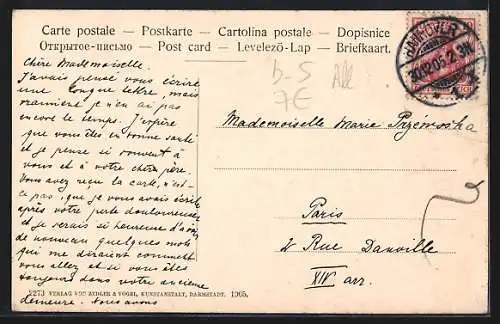 Carte postale — Postkarte — Cartolina postale — Dopisnice
Открытое-письмо — Post card — Levelező-Lap — Briefkaart.
HANNOVER
30.12.05.2
b-5
7€
Chère Mademoiselle.
J'avais pensé vous écrire
une longue lettre, mais
vraiment je n'en ai pas
encore le temps. J'espère
que vous êtes en bonne santé
et je pense si souvent à
vous et à votre chère père.
Vous avez reçu la carte, n'est-
ce pas, que je vous avais écrite
après votre perte douloureuse
et je serais si heureuse d'avoir
de nouveau quelques mots
qui me diraient comment
vous allez et si vous êtes
toujours dans votre ancienne
demeure. Nous avons
Mademoiselle Marie
Paris
Rue Danville
XIV arr.
2273 VERLAG VON ZEDLER & VOGEL, KUNSTANSTALT, DARMSTADT. 1905.